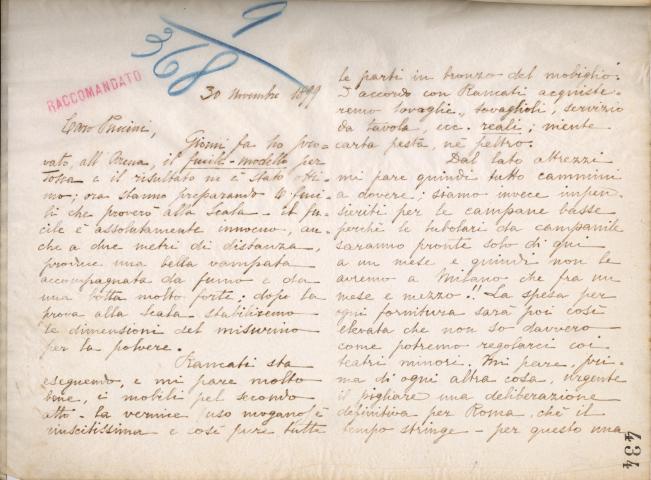 9
368
RACCOMANDATO
30 novembre 1899
Caro Puccini,
Giorni fa ho pro-
vato, all'Arena, il fucile-modello per
Tosca e il risultato m'è stato otti-
mo; ora stanno preparando 4 fuci-
li che proverò alla Scala - il fu-
cile è assolutamente innocuo, an-
che a due metri di distanza,
produce una bella vampata
accompagnata da fumo e da
una botta molto forte: dopo la
prova alla Scala stabiliremo
le dimensioni del misurino
per la polvere.
Rancati sta
eseguendo, e mi pare molto
bene, i mobili pel secondo
atto - la vernice uso mogano è
riuscitissima e così pure tutte
le parti in bronzo del mobiglio.
D'accordo con Rancati acquiste-
remo tovaglie, tovaglioli, servizio
da tavola, ecc. reali; niente
carta pesta, nè peltro.
Dal lato attrezzi
mi pare quindi tutto cammini
a dovere; siamo invece impen-
sieriti per le campane basse
perchè le tubolari da campanile
saranno pronte solo di qui
a un mese e quindi non le
avremo a Milano che fra un
mese e mezzo!! La spesa per
ogni fornitura sarà poi così
elevata che non so davvero
come potremo regolarci coi
teatri minori. Mi pare, pri-
ma di ogni altra cosa, urgente
il pigliare una deliberazione
definitiva per Roma, chè il
tempo stringe - per questo una
434